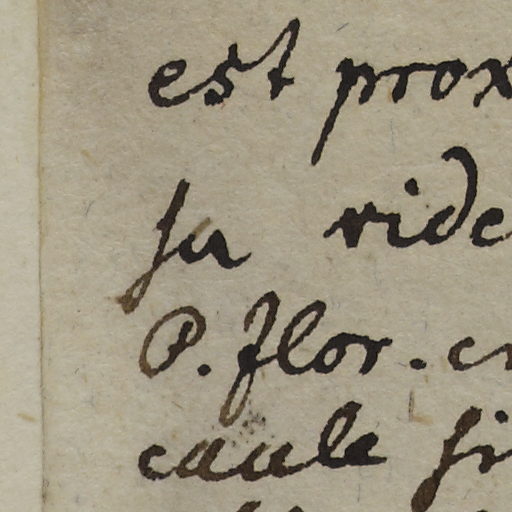 est prox
sa vide
P. flor. cr
caule si